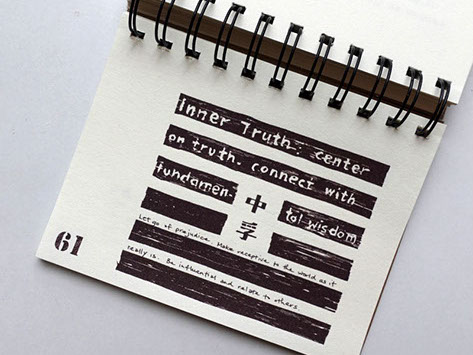 Inner Truth: center
on truth. connect with
fundamen
中
孚
tal wisdom
Let go of prejudice. Make receptive to the world as it
really is. Be influential and relate to others.
61